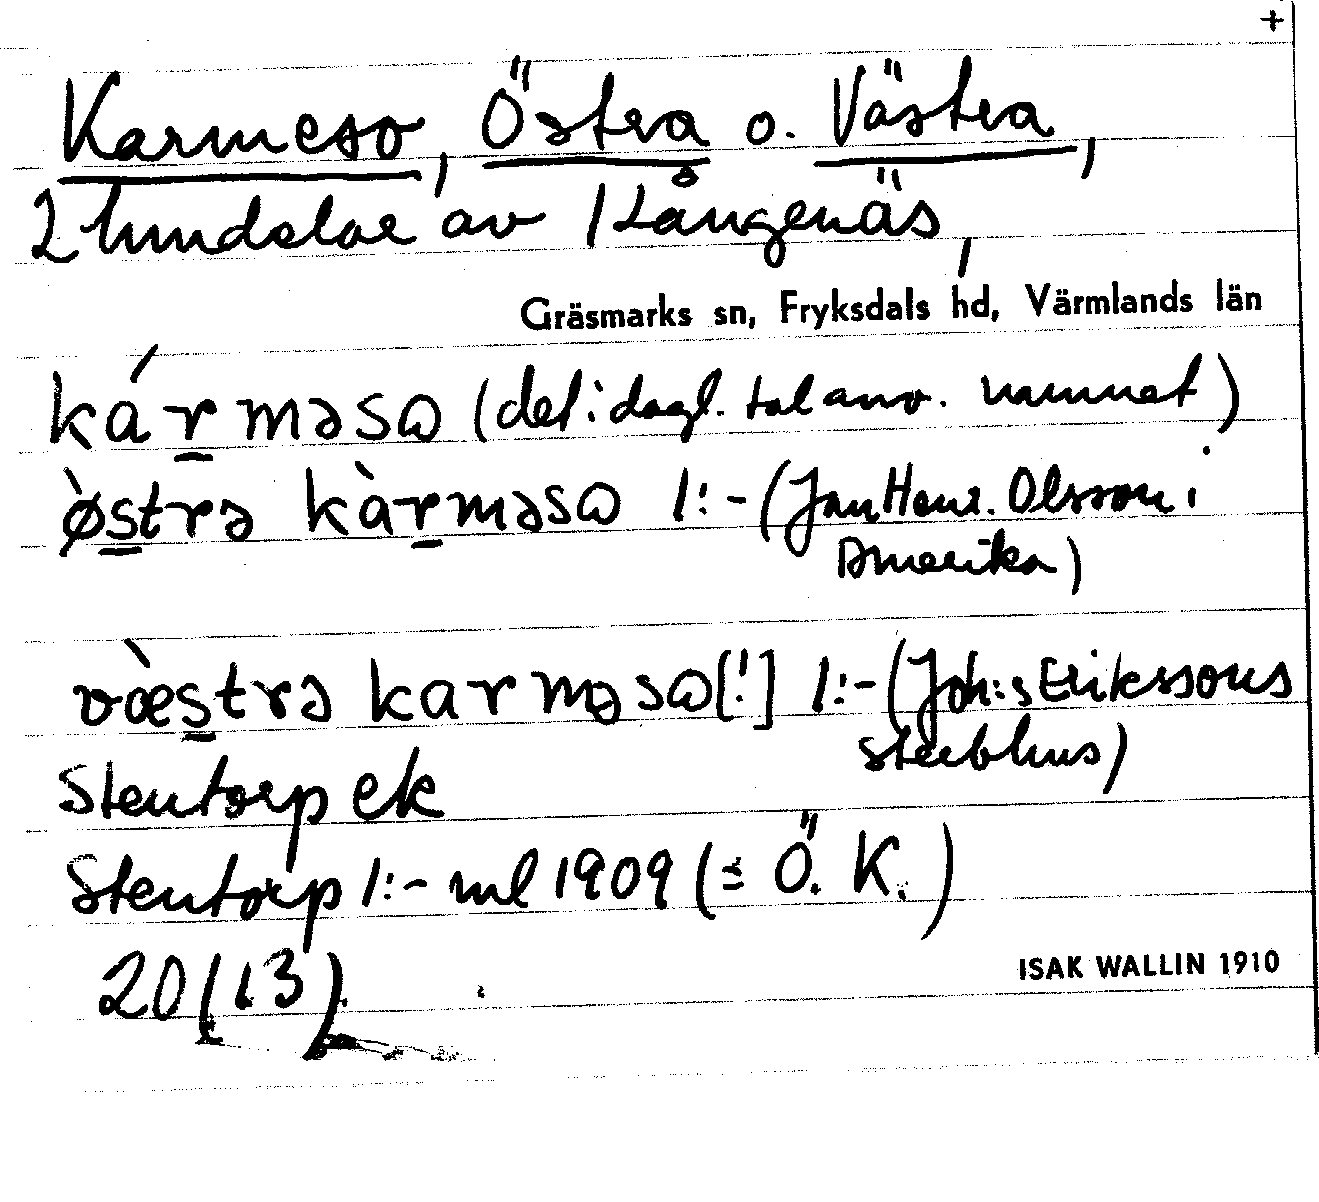 +
Karmeso, Östra o. Västra,
2 lundelar av 1 Långenäs,
Gräsmarks sn, Fryksdals hd, Värmlands län
kármǝsɷ (det i dagl. tal anv. namnet)
ø̀strǝ kàrmǝsɷ 1:- (Jan Henr. Olsson i
Amerika)
væ̀strǝ karmǝsɷ [!] 1:- (Joh:s Erikssons
sterbhus)
Stentorp ek
Stentorp 1:- ml 1909 (= Ö. K.)
20 (13)
ISAK WALLIN 1910